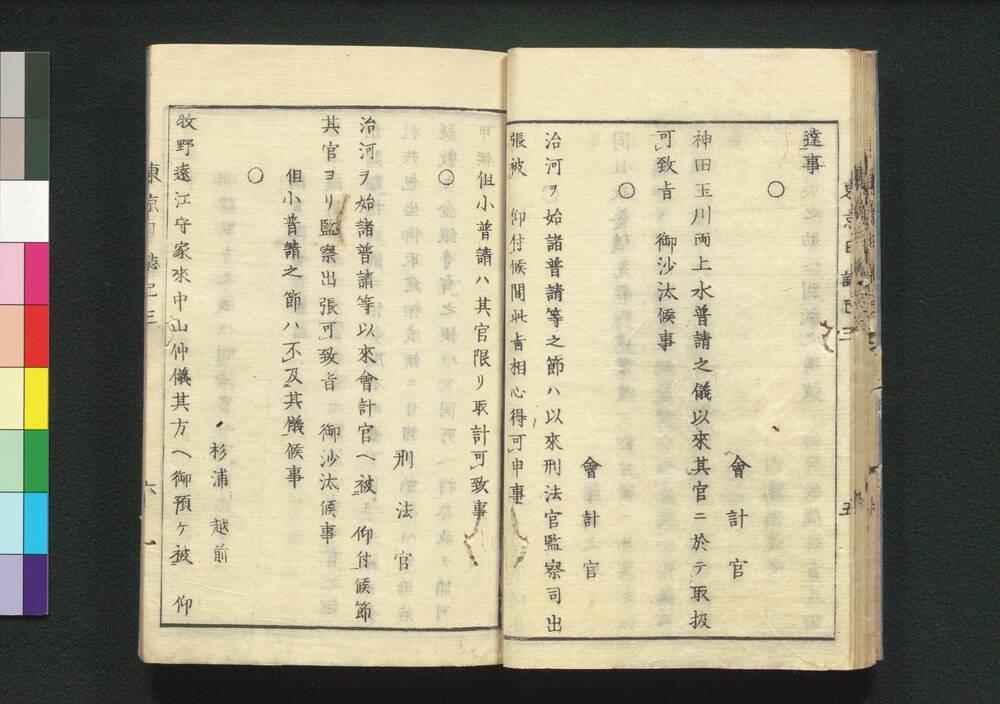 達事
○
會計官
神田玉川両上水普請之儀以來其官ニ於テ取扱
可致旨　御沙汰候事
○
會計官
治河ヲ始諸普請等之節ハ以來刑法官監察司出
張被　仰付候間此旨相心得可申事
但小普請ハ其官限リ取計可致事
○
刑法官
治河ヲ始諸普請等以來會計官ヘ被　仰付候節
其官ヨリ監察出張可致旨　御沙汰候事
但小普請之節ハ不及其儀候事
○
杉浦越前
牧野遠江守家來中山仲儀其方ヘ御預ケ被　仰
東京日誌
五
六